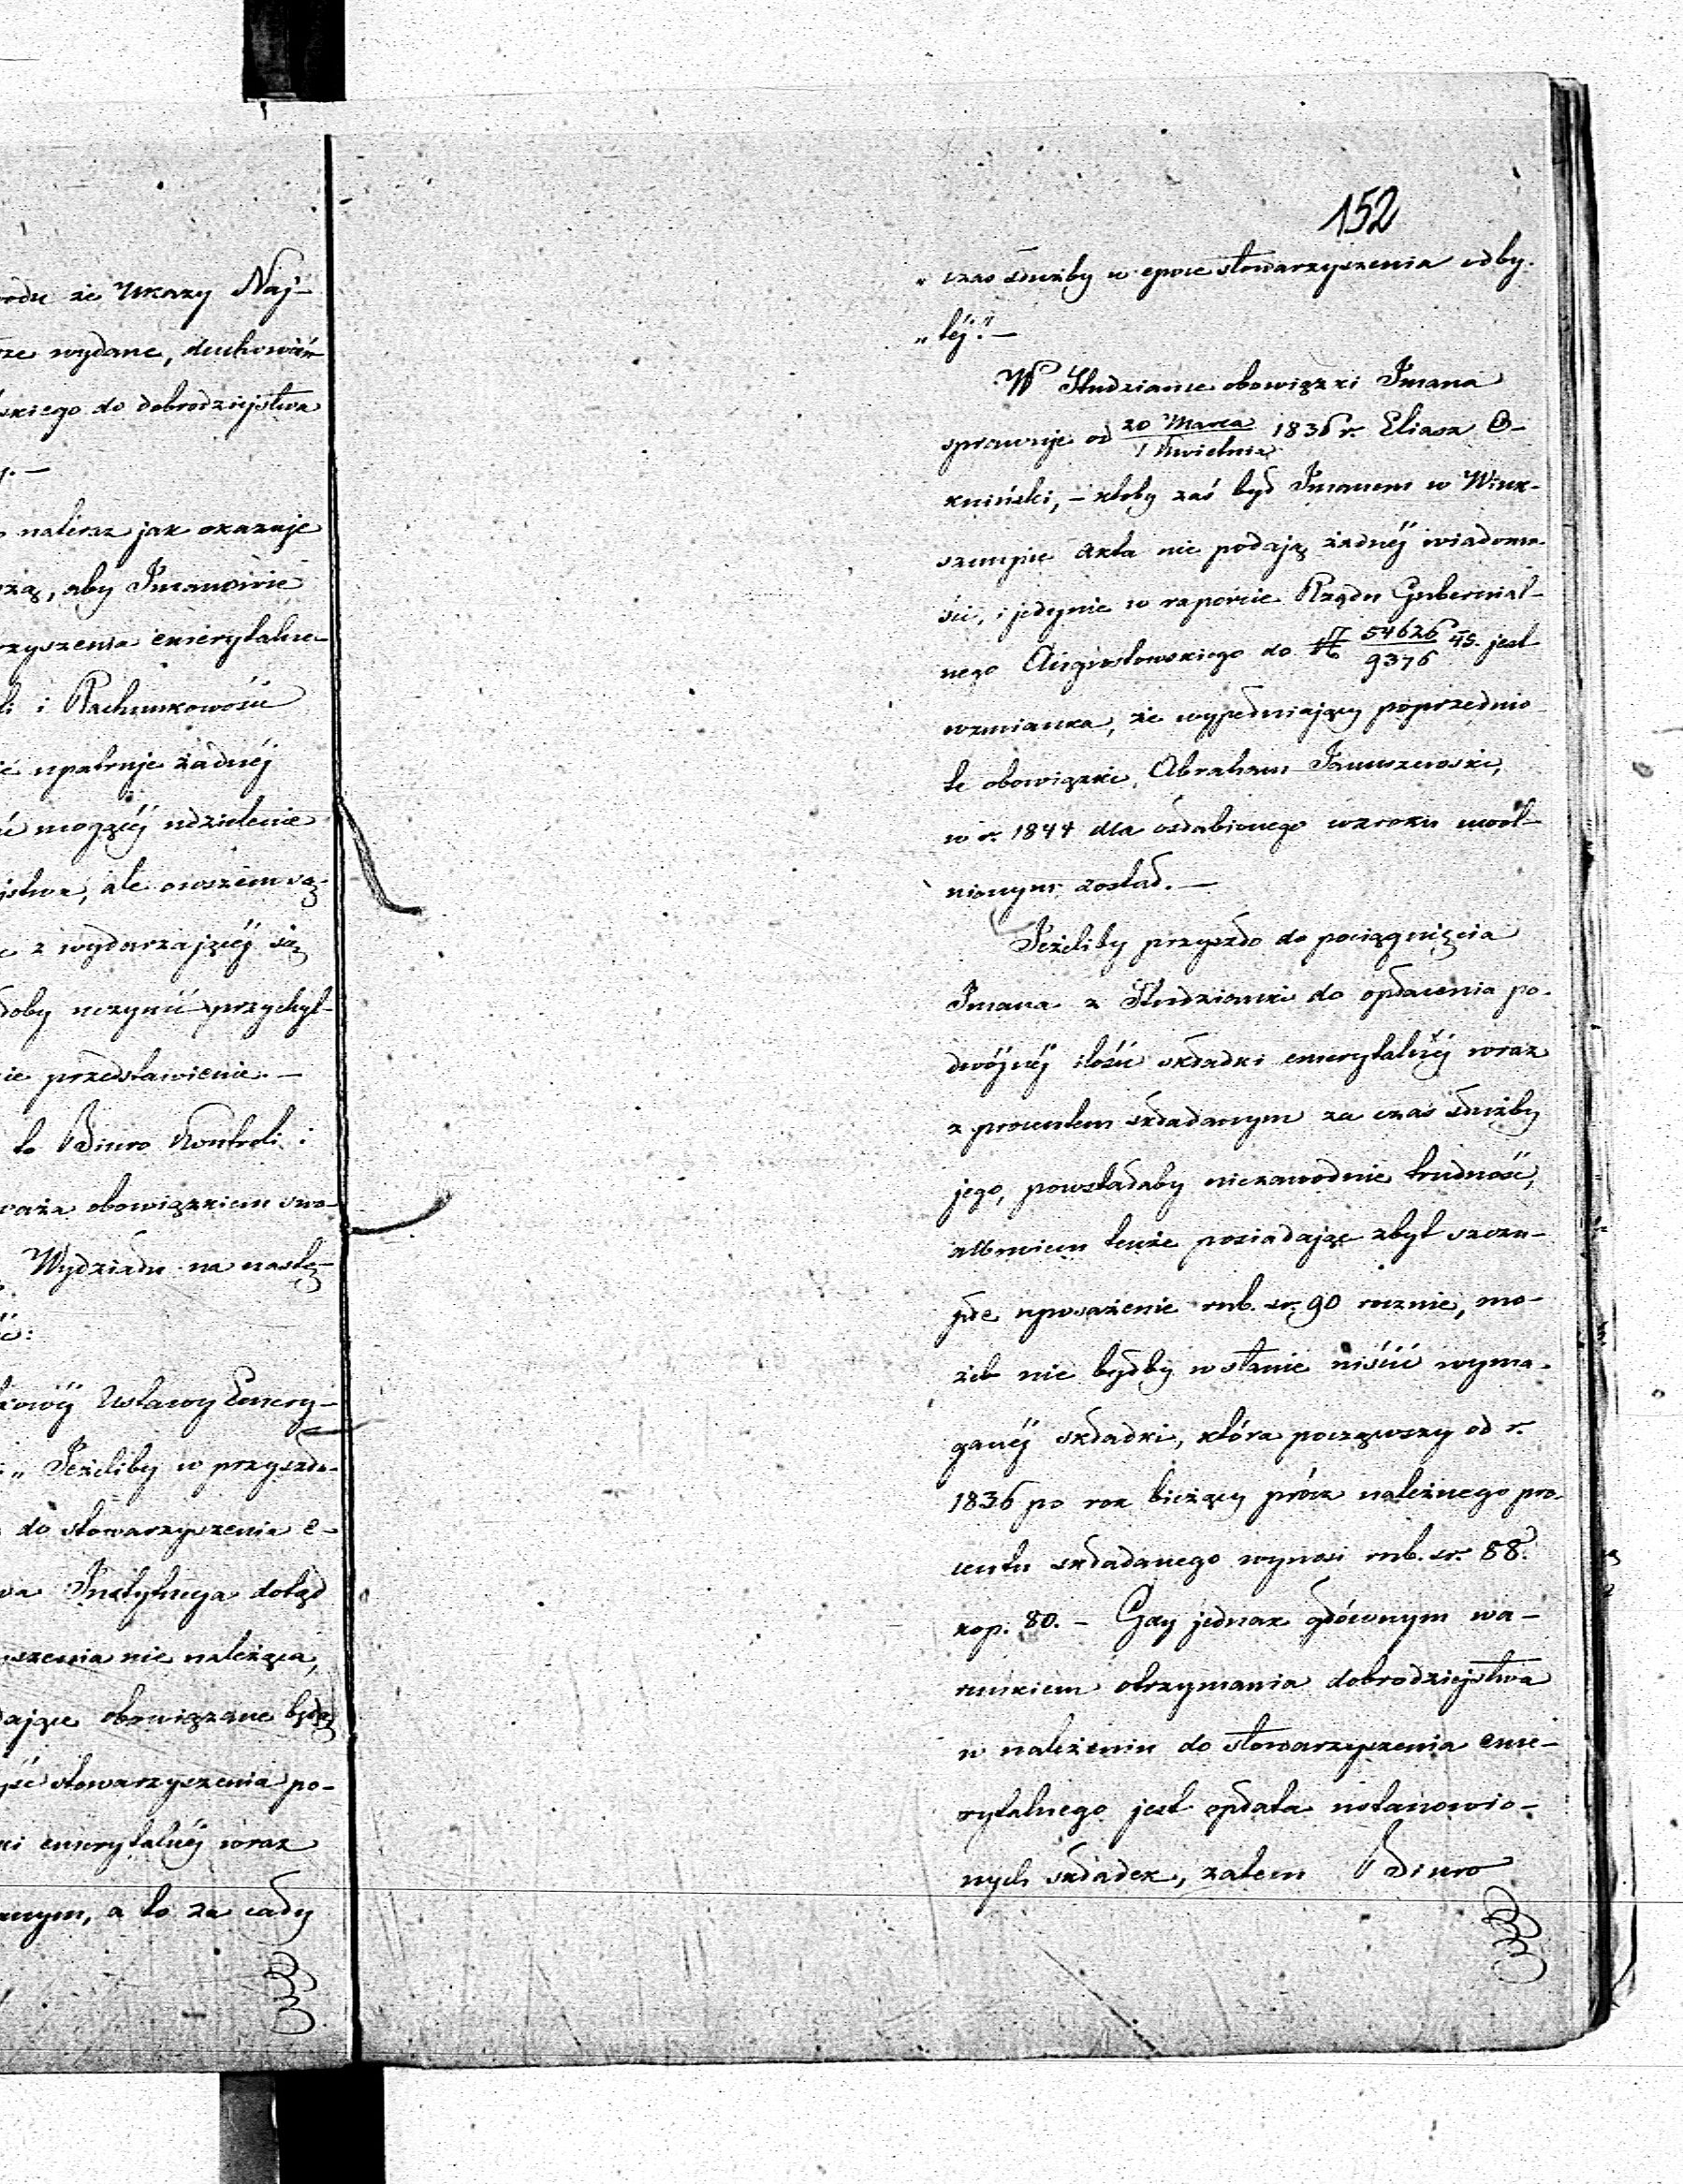 odu że Ukazy Naj-
ze wydane, duchowień-
skiego do dobrodziejstwa
y. —
nalicza jak okazuje
żą, aby Imanowie
rzyszenia emerytalne-
li i Rachunkowości
ie upatruje żadnéj
ć mogącéj udzielenie
jstwa, ale owszem są-
z wydarzającéj się
doby uczynić przychyl-
ie przedstawienie. —
to Biuro Kontroli i
waża obowiązkiem swo-
Wydziału na nastę-
ć:
kowéj Ustawy Emery-
„ Jeżeliby w przyszło-
do stowarzyszenia e-
wa Instytucya dotąd
szenia nie należąca,
dające obowiązane będą
yść stowarzyszenia po-
ki emerytalnéj wraz
anym, a to za cały
152
„ czas służby w epoce stowarzyszenia odby-
„ téj." —
W Studziance obowiązki Imana
sprawuje od 20 Marca / 1 Kwietnia 1836 r. Eliasz O-
kmiński, — ktoby zaś był Imanem w Wink-
sznupie akta nie podają żadnéj wiadomo-
ści, i jedynie w raporcie Rządu Gubernial-
nego Augustowskiego do № 54626/9376 45. jest
wzmianka, że wypełniający poprzednio
te obowiązki, Abraham Januszewski,
w r. 1844 dla osłabionego wzroku uwol-
nionym został. —
Jeżeliby przyszło do pociągnięcia
Imana z Studzianki do opłacenia po-
dwójnéj ilości składki emerytalnéj wraz
z procentem składanym za czas służby
jego, powstałaby niezawodnie trudność,
albowiem tenże posiadając zbyt szczu-
płe uposażenie rub. sr. 90 rocznie, mo-
że nie byłby w stanie uiścić wyma-
ganéj składki, która począwszy od r.
1836 po rok bieżący prócz należnego pro-
centu składanego wynosi rub. sr. 88.
kop. 80. — Gdy jednak głównym wa-
runkiem otrzymania dobrodziejstwa
w należeniu do stowarzyszenia eme-
rytalnego jest opłata ustanowio-
nych składek, zatem Biuro